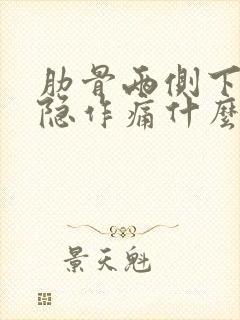 肋骨两侧下
隐作痛什麽
景天魁